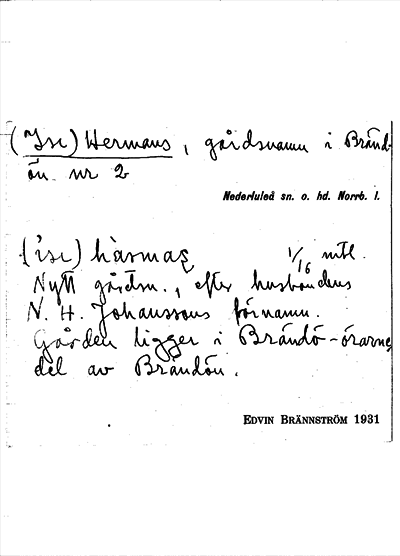 (Isc) Hermans, gårdsnamn i Bränd-
ön nr 2
Nederluleå sn. o. hd. Norrb. l.
1/16 mtl.
Nytt gårdsn., efter husbondens
N. H. Johanssons förnamn.
Gården ligger i Brändö-
del av Brändön.
EDVIN BRÄNNSTRÖM 1931